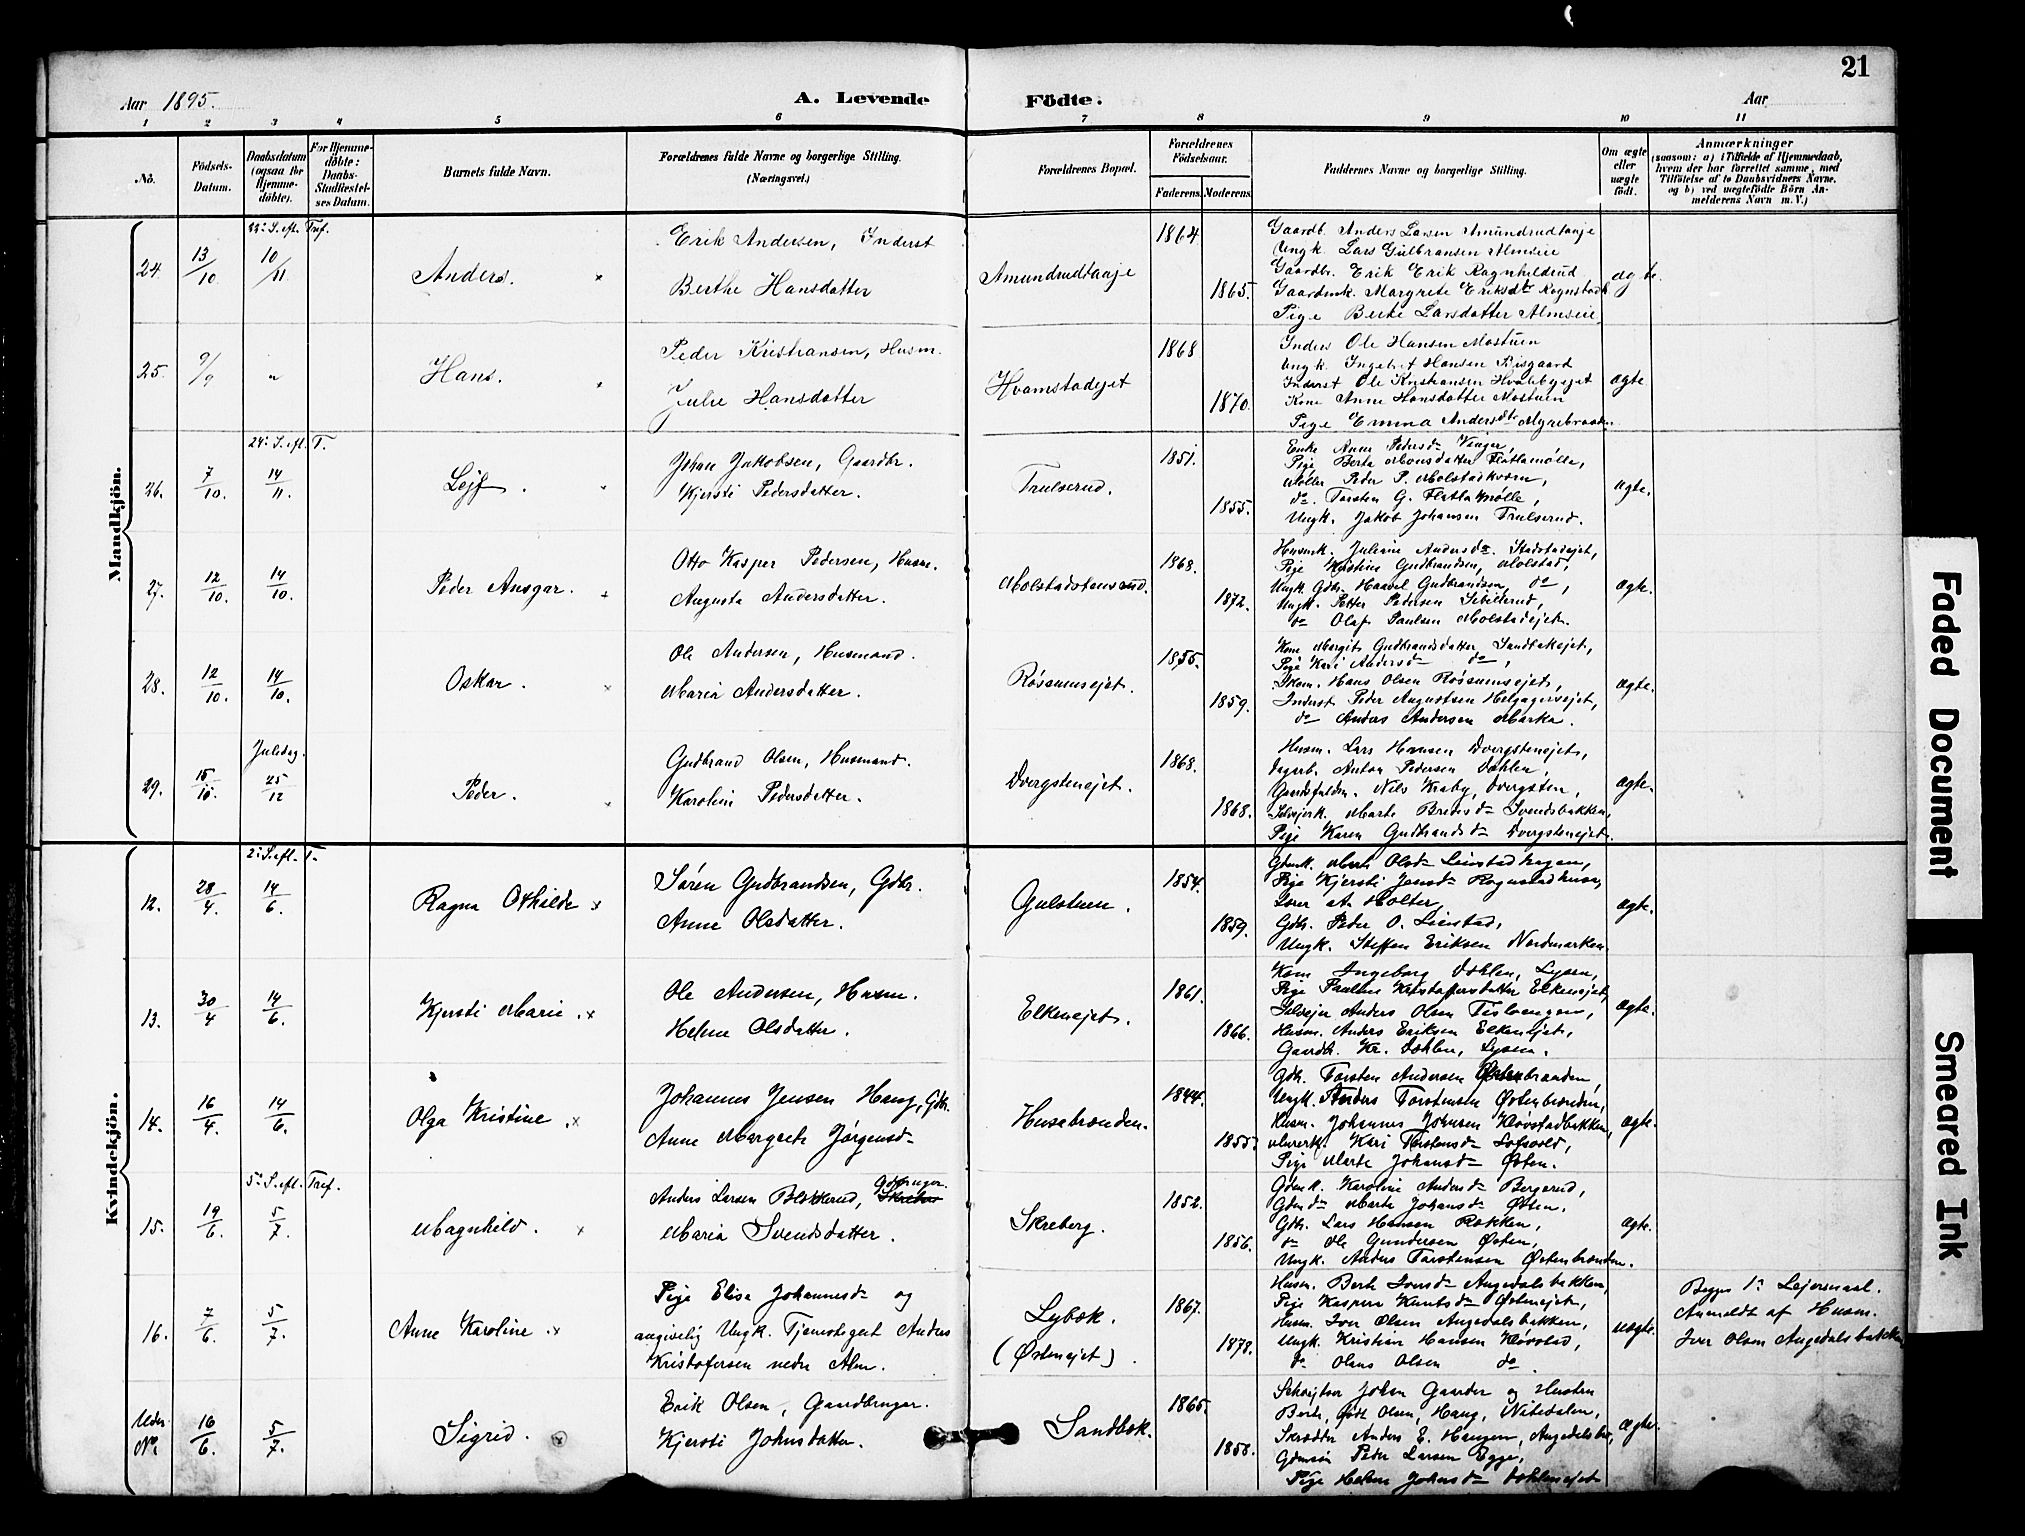 21
Aar 1895. A. Levende Födte. Aar
1 2 3 4 5 6 7 8 9 10 11
No. Födsels-Datum. Daabsdatum (ogsaa for Hjemme-döbte). For Hjemme-döbte: Daabs-Stadfæstel-ses Datum. Barnets fulde Navn. Forældrenes fulde Navne og borgerlige Stilling. (Næringsvei.) Forældrenes Bopæl. Forældrenes Födselsaar. Faderens. Moderens. Faddernes Navne og borgerlige Stilling. Om ægte eller uægte födt. Anmærkninger (saasom: a) i Tilfælde af Hjemmedaab, hvem der har forrettet samme, med Tilföielse af to Daabsvidners Navne, og b) ved uægtefödte Börn An-melderens Navn m. V.)
Mandkjön.
22: S. eft. Tref.
24. 13/10 10/11 Anders. Erik Andersen, Inderst
Berthe Hansdatter
Amundrudtaaje 1864 1865.
Gaardb. Anders Larsen Amundrudtaaje
Ungk. Lars Gulbransen Almseie
Gaardbr. Erik Erik Ragnhildrud
Gaardmk. Margrete Eriksdtr Rognstadk
Pige Berte Larsdatter Almseie.
ægte.
25. 9/9 " Hans. Peder Kristiansen, Husm.
Julie Hansdatter
Hvamstadejet 1868 1870.
Inders Ole Hansen Mostuen
Ungk. Ingebret Hansen Risgaard
Inderst Ole Kristiansen Hvalebyejet
Kone Anne Hansdatter Mostuen
Pige Emma Andersdtr Myrebraaten.
ægte
24: S. eft. T.
26. 7/10. 14/11. Lejf. Johan Jakobsen, Gaardbr.
Kjersti Pedersdatter.
Trulserud. 1851. 1855.
Enke Anne Pedersd Vinger,
Pige Berta Monsdatter Flatlamølle,
Møller Peder P. Molstadkvern,
do. Torsten G. Flatlamølle,
Ungk. Jakob Johansen Trulserud.
ægte.
27. 12/10. 14/10. Peder Ansgar. Otto Kasper Pedersen, Husm.
Augusta Andersdatter.
Molstadstensrud. 1868. 1872.
Husmk. Juliane Andersd. Stadstadejet,
Pige Kristine Gudbrandsen, Molstad,
Ungk. Gdbr. Haavel Gudbrandsen, do,
Ungk. Petter Pedersen Sibilerud,
do Olaf Paulsen Molstadejet.
ægte.
28. 12/10. 14/10. Oskar. Ole Andersen, Husmand.
Maria Andersdatter.
Røssumsejet. 1855. 1859.
Kone Margit Gudbrandsdatter Sandbaksejet,
Pige Kari Andersd do,
Hans Olsen Røssumsejet,
Inderst Peder Augustsen Helgagersejet,
do Anders Andersen Marka.
ægte.
Juledag.
29. 15/10. 25/12 Peder. Gudbrand Olsen, Husmand.
Karoline Pedersdatter.
Dvergstenejet. 1868. 1868.
Husm. Lars Hansen Dvergstenejet,
Dagarb. Anton Pedersen Dahlen,
Nils Kraby, Dvergsten,
Selvejerk. Marte Bredesd Svendsbakken,
Pige Karen Gudbrandsd Dvergstenejet.
ægte.
Kvindekjön.
2: S. eft. T.
12. 28/4. 14/6. Ragna Othilde Søren Gudbrandsen, Gdbr.
Anne Olsdatter.
Gulstuen. 1854. 1859.
Gdmk. Marte Olsd Leinstadhagen,
Pige Kjersti Jensd Rognstadhusa,
Iver At. Holter,
Gdbr. Peder O. Leinstad,
Ungk. Steffen Eriksen Nordmarken.
ægte.
13. 30/4 14/6. Kjersti Marie. Ole Andersen, Husm.
Helene Olsdatter.
Elkenejet. 1861. 1866.
Kone Ingeborg Dahlen, Lysen,
Pige Pauline Kristoffersdatter Elkenejet,
Selvejer Anders Olsen Tislængen,
Husm. Anders Eriksen Elkenejet,
Gaardb. Kr. Dahlen, Lysen.
ægte.
14. 16/4. 14/6. Olga Kristine. Johannes Jensen Haug, Gdbr.
Anne Margrete Jørgensd
Husabrænden. 1844. 1855.
Gdbr. Torsten Andersen Østenbrænden,
Ungk. Anders Torstensen Østenbrænden,
Husm. Johannes Johnsen Kløvstadbakken,
Murerk. Kari Torstensd Lofsvold,
Pige Marte Johansd Østen.
ægte.
5: S. eft. Tref.
15. 19/6. 5/7. Magnhild. Anders Larsen Blekkerud, Gdbruger.
Maria Svendsdatter.
Skreberg. 1852. 1856.
Gdmk. Karoline Andersd Bergerud,
Gdmd Marte Johansd Østen,
Gdbr. Lars Hansen Røkken,
do Ole Gundersen Østen,
Ungk. Anders Torstensen Østenbrænden.
ægte.
16. 7/6. 5/7. Anne Karoline. Pige Elise Johannesd og
angivelig Ungk. Tjenestegut Anders
Kristofersen nedre Alm.
Lybæk.
(Østenejet). 1867. 1878.
Husm. Berte Iversd Angedalsbakken,
Pige Kaspara Knutsd Østenejet,
Husm. Iver Olsen Angedalsbakken,
Ungk. Kristian Hansen Kløvstad,
do Olaus Olsen do.
uægte.
Begges 1ste Lejermaal.
Anmeldt af Husm.
Iver Olsen Angedalsbakken
Uden No. 16/6. 5/7. Sigrid. Erik Olsen, Gaardbruger.
Kjersti Johnsdatter.
Sandbæk. 1865. 1858.
Johan Gaarder og Hustru
Berte, født Olsen, Haug, Nitedalen,
Skrædder Anders E. Haugen, Angedalsbr,
Gdmsøn Peder Larsen Egge,
Pige Helene Johansd Dahlenejet
ægte.
Faded Document
Smeared Ink